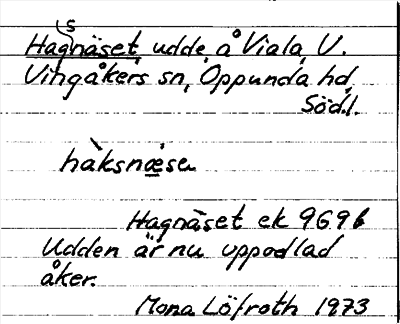 s
Hagnäset, udde, å Viala, V.
Vingåkers sn, Oppunda hd,
Södl.
hàksnæ̀sen
Hagnäset ek 9G9b
Udden är nu uppodlad
åker.
Mona Löfroth 1973